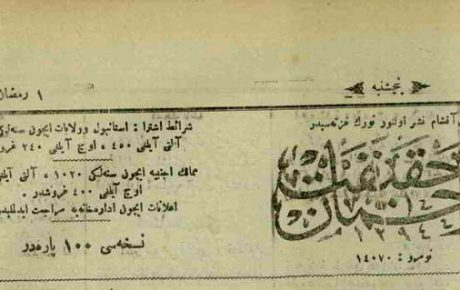 پنجشنبه
١ رمضان
آقشام نشر اولنور تورك غزته‌سیدر
ترجمان حقیقت
١٣٩٤٤
نومرو : ١٤٠٧٠
شرائط اشترا : استانبول وولایات ایچون سنه‌لكی
آلتی آیلغی ٤٥٠ ، اوچ آیلغی ٢٤٠ غروشدر
ممالك اجنبیه ایچون سنه‌لكی ١٠٢٠ ، آلتی آیلغی
اوچ آیلغی ٤٠٠ غروشدر .
اعلانات ایچون اداره‌خانه‌یه مراجعت ایدلملیدر
نسخه‌سی ١٠٠ پاره‌در